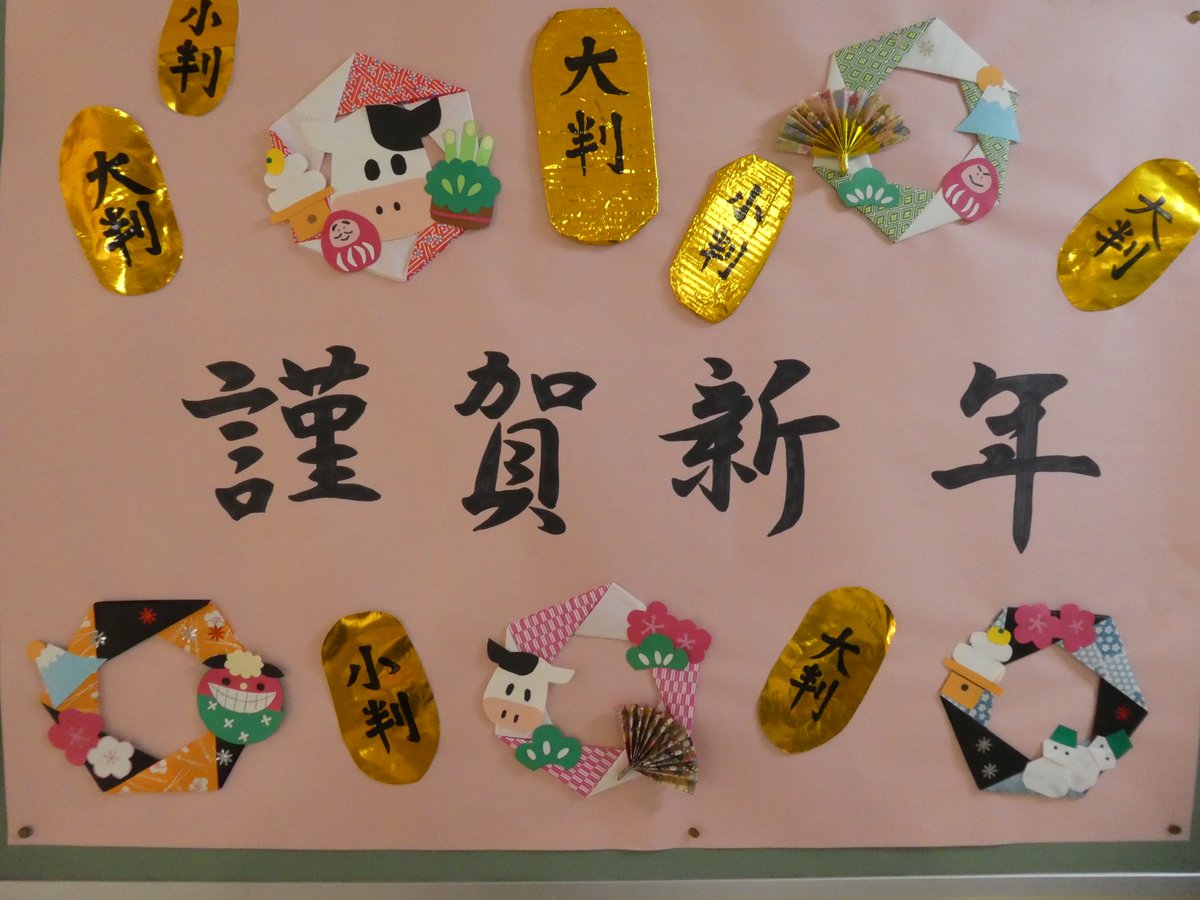 小判
大判
大判
小判
大判
謹賀新年
小判
大判